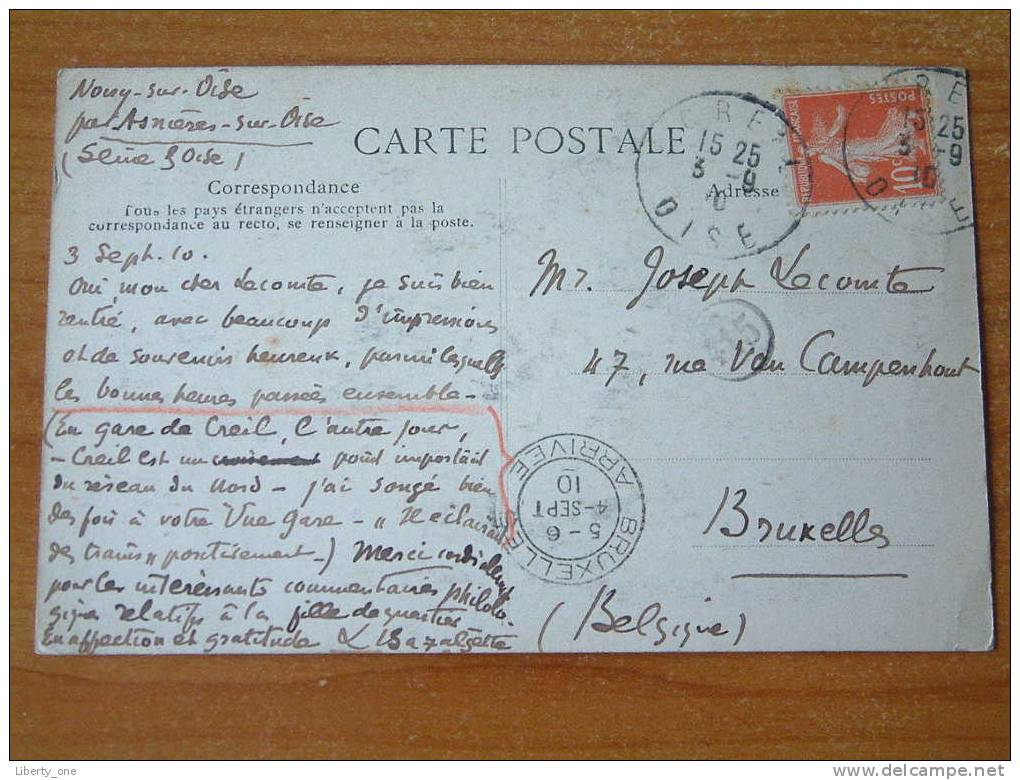 Noisy-sur-Oise
par Asnières-sur-Oise
(Seine & Oise)
CARTE POSTALE
Correspondance
Tous les pays étrangers n'acceptent pas la
correspondance au recto, se renseigner à la poste.
Adresse
3 Sept. 10.
Oui, mon cher Lecomte, je suis bien
rentré, avec beaucoup d'impressions
et de souvenirs heureux, parmi lesquelles
les bonnes heures passées ensemble -
(En gare de Creil, l'autre jour,
- Creil est un croisement point important
du réseau du Nord - j'ai songé bien
des fois à votre Vue Gare - "
des trains" positivement -) Merci cordialement
pour les intéressants commentaires philolo-
giques relatifs à la fille de quartier
En affection et gratitude L Bazalgette
Mr. Joseph Lecomte
47, rue Van Campenhout
Bruxelles
(Belgique)
15 25
3 - 9
10
OISE
15 25
3 - 9
10
OISE
REPUBLIQUE FRANÇAISE
POSTES
10c
BRUXELLES
5 - 6
4-SEPT
10
ARRIVEE
Liberty_one
www.delcampe.net